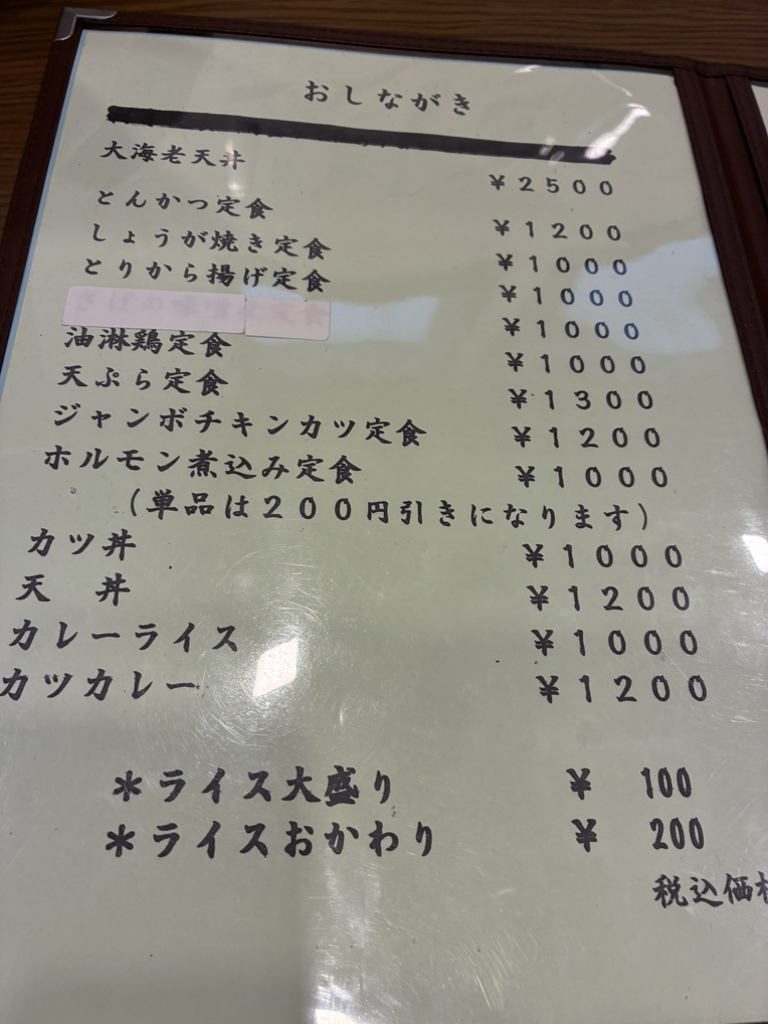 おしながき
大海老天丼 ¥2500
とんかつ定食 ¥1200
しょうが焼き定食 ¥1000
とりから揚げ定食 ¥1000
さばの味噌煮定食 ¥1000
油淋鶏定食 ¥1000
天ぷら定食 ¥1300
ジャンボチキンカツ定食 ¥1200
ホルモン煮込み定食 ¥1000
(単品は200円引きになります)
カツ丼 ¥1000
天　丼 ¥1200
カレーライス ¥1000
カツカレー ¥1200
＊ライス大盛り ¥ 100
＊ライスおかわり ¥ 200
税込価格